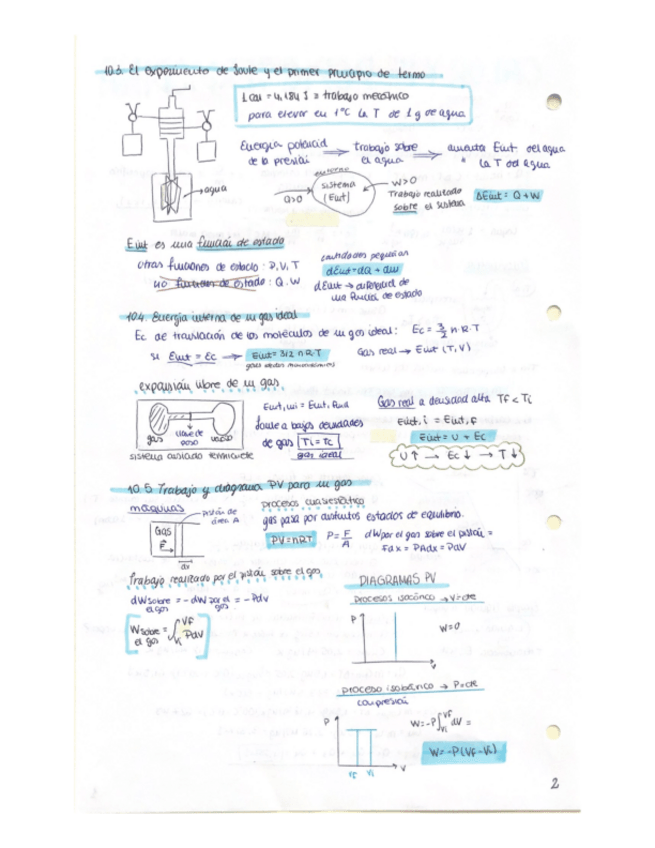 10.3. El experimento de Joule y el primer principio de termo
1 cal = 4,184 J = trabajo mecánico
para elevar en 1°C la T de 1 g de agua
agua
Energía potencial ⇒ trabajo sobre ⇒ aumenta Eint del agua
de la presión el agua la T del agua
entorno
sistema
(Eint)
Q>0
W>0
Trabajo realizado
sobre el sistema
ΔEint = Q + W
Eint es una función de estado
otras funciones de estado: P, V, T
no funciones de estado: Q, W
cantidades pequeñas
dEint = dQ + dW
dEint → diferencial de
una función de estado
10.4. Energía interna de un gas ideal
Ec de traslación de las moléculas de un gas ideal: Ec = 3/2 n·R·T
si Eint = Ec → Eint = 3/2 n R T
gases ideales monoatómicos
Gas real → Eint (T, V)
expansión libre de un gas
gas
llave de
paso
vacío
sistema aislado térmicamente
Eint, ini = Eint, final
Joule a bajas densidades
de gas Ti = Tf
gas ideal
Gas real a densidad alta Tf < Ti
Eint, i = Eint, f
Eint = U + Ec
U↑ → Ec↓ → T↓
10.5 Trabajo y diagrama PV para un gas
máquinas
Pistón de
área A
Gas
F
dx
procesos cuasiestático
gas pasa por distintos estados de equilibrio.
PV = nRT
P = F/A
dW por el gas sobre el pistón =
Fdx = PAdx = PdV
Trabajo realizado por el pistón sobre el gas
dW sobre el gas = - dW por el gas = - PdV
W sobre el gas = ∫ Vf Vi PdV
DIAGRAMAS PV
procesos isocórico → V=cte
P
V
W=0
proceso isobárico → P=cte
compresión
P
V
Vf Vi
W = -P ∫ Vf Vi dV =
W = -P (Vf - Vi)
2